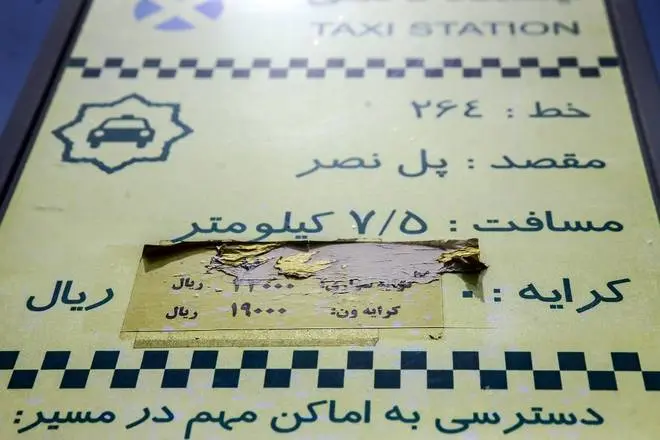 TAXI STATION
خط : ۲۶۴
مقصد : پل نصر
مسافت : ۷/۵ کیلومتر
کرایه : ریال
ریال
کرایه ون: ۱۹۰۰۰ ریال
دسترسی به اماکن مهم در مسیر: